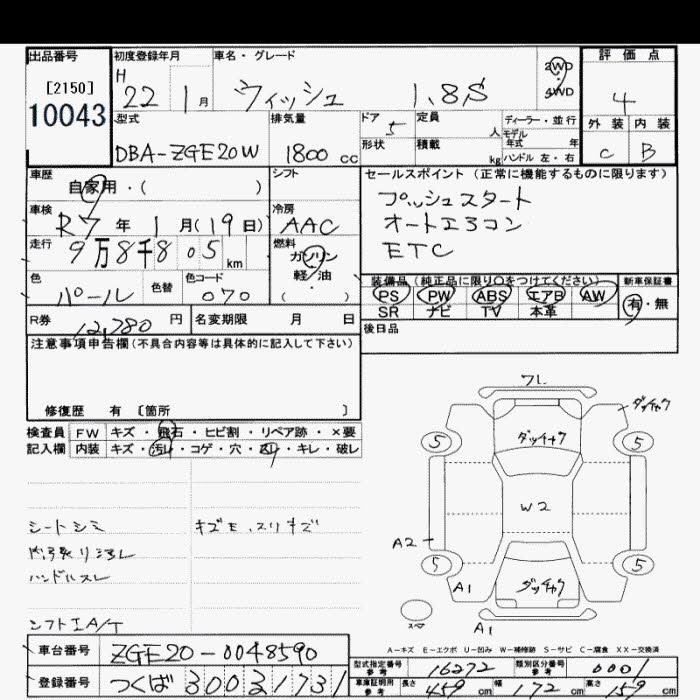 出品番号 初度登録年月 車名・グレード 評価点
[2150] H 22 1月 ウィッシュ 1.8S 2WD 4WD 4
10043 外装 内装
型式 排気量 ドア 5 定員 人 ディーラー・並行
モデル
DBA-ZGE20W 1800cc 形状 積載 kg 年式 年 ハンドル 左・右 C B
車歴 シフト セールスポイント(正常に機能するものに限ります)
自家用・( ) プッシュスタート
車検 R7年1月(19日) 冷房 AAC オートエアコン
走行 9万8千805km 燃料 ガソリン ETC
軽・油
( )
色 パール 色替 色コード 070
装備品(純正品に限り○をつけてください) 新車保証書
PS PW ABS エアB AW 有・無
SR ナビ TV 本革
R券 12,780円 名変期限 月 日 後日品
注意事項申告欄(不具合内容等は具体的に記入して下さい)
修復歴 有 〔箇所 〕
検査員 FW キズ・飛石・ヒビ割・リペア跡・×要
記入欄 内装 キズ・汚レ・コゲ・穴・スレ・キレ・破レ
シートシミ キズE、スリキズ
ハンドルスレ
シフトIA/T
ワレ
ダッチャク
5 ダッチャク 5
W2
A2
5 ダッチャク 5
A1
A1
A-キズ E-エクボ U-凹み W-補修跡 S-サビ C-腐食 XX-交換済
車台番号 ZGE20-0048590
登録番号 つくば 300 ス 1731
型式指定番号 参考 16272 類別区分番号 参考 0001
車庫証明用 参考 長さ 459cm 幅 172cm 高さ 159cm